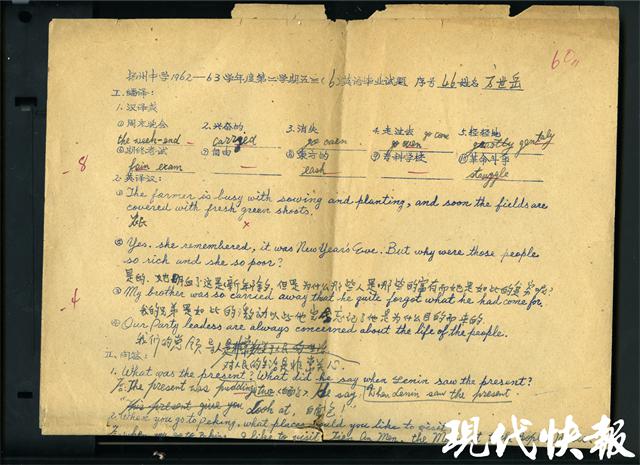 扬州中学1962—63学年度第二学期五三(6)英语毕业试题 序号 46 姓名 方世岳
60
I. 翻译:
1. 汉译英
① 周末晚会 2. 兴奋的 3. 消失 4. 走过去 5. 轻轻地
the week-end carried go caen go come go oven gently
-8
⑥ 期终考试 ⑦ 自由 ⑧ 东方的 ⑨ 专科学校 ⑩ 革命斗争
fain exam eash stuggle
2. 英译汉:
① The farmer is busy with sowing and planting, and soon the fields are
covered with fresh green shoots.
农
② Yes, she remembered, it was New Year's Eve. But why were those people
so rich and she so poor?
是的, 她明白了这是新年除夕, 但是为什么那些人是那些的富有而她是如此的贫穷呢?
③ My brother was so carried away that he quite forgot what he had come for.
-4
我的兄弟是如此的激动以此他完全忘记了他是为什么目的而来的.
④ Our Party leaders are always concerned about the life of the people.
我们的党领导人
对人民的生活是非常关心
II. 问答:
1. What was the present? What did he say when Lenin saw the present?
The present was pudding He say When Lenin saw the present
"This present give you Look at,
2. When you go to Peking, what places would you like to visit?
I like to visit Tien An Men, the
现代快报